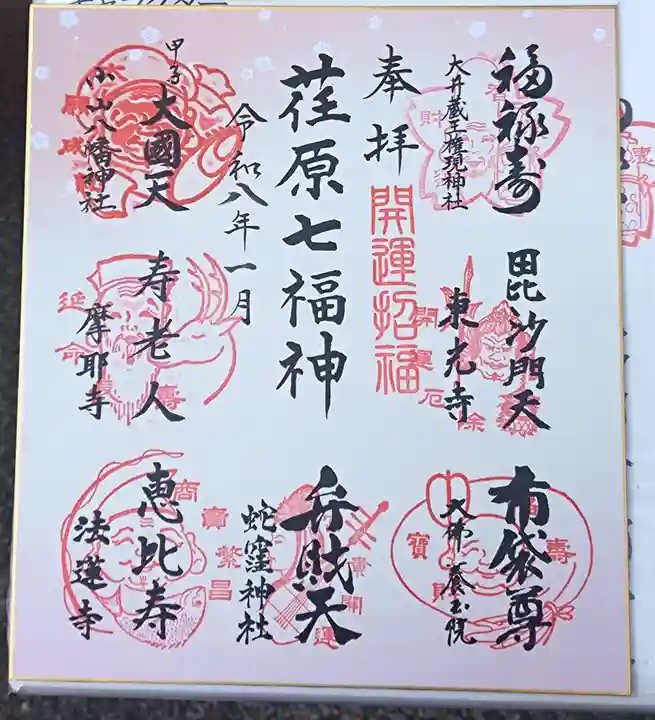 福禄寿
大井蔵王権現神社
毘沙門天
東光寺
開運厄除
布袋尊
大佛 養玉院
寿
寳
財
奉拝
開運招福
荏原七福神
令和八年一月
弁財天
蛇窪神社
開運
甲子
大國天
小山八幡神社
寿老人
摩耶寺
延命
壽
恵比寿
法蓮寺
商賣繁昌